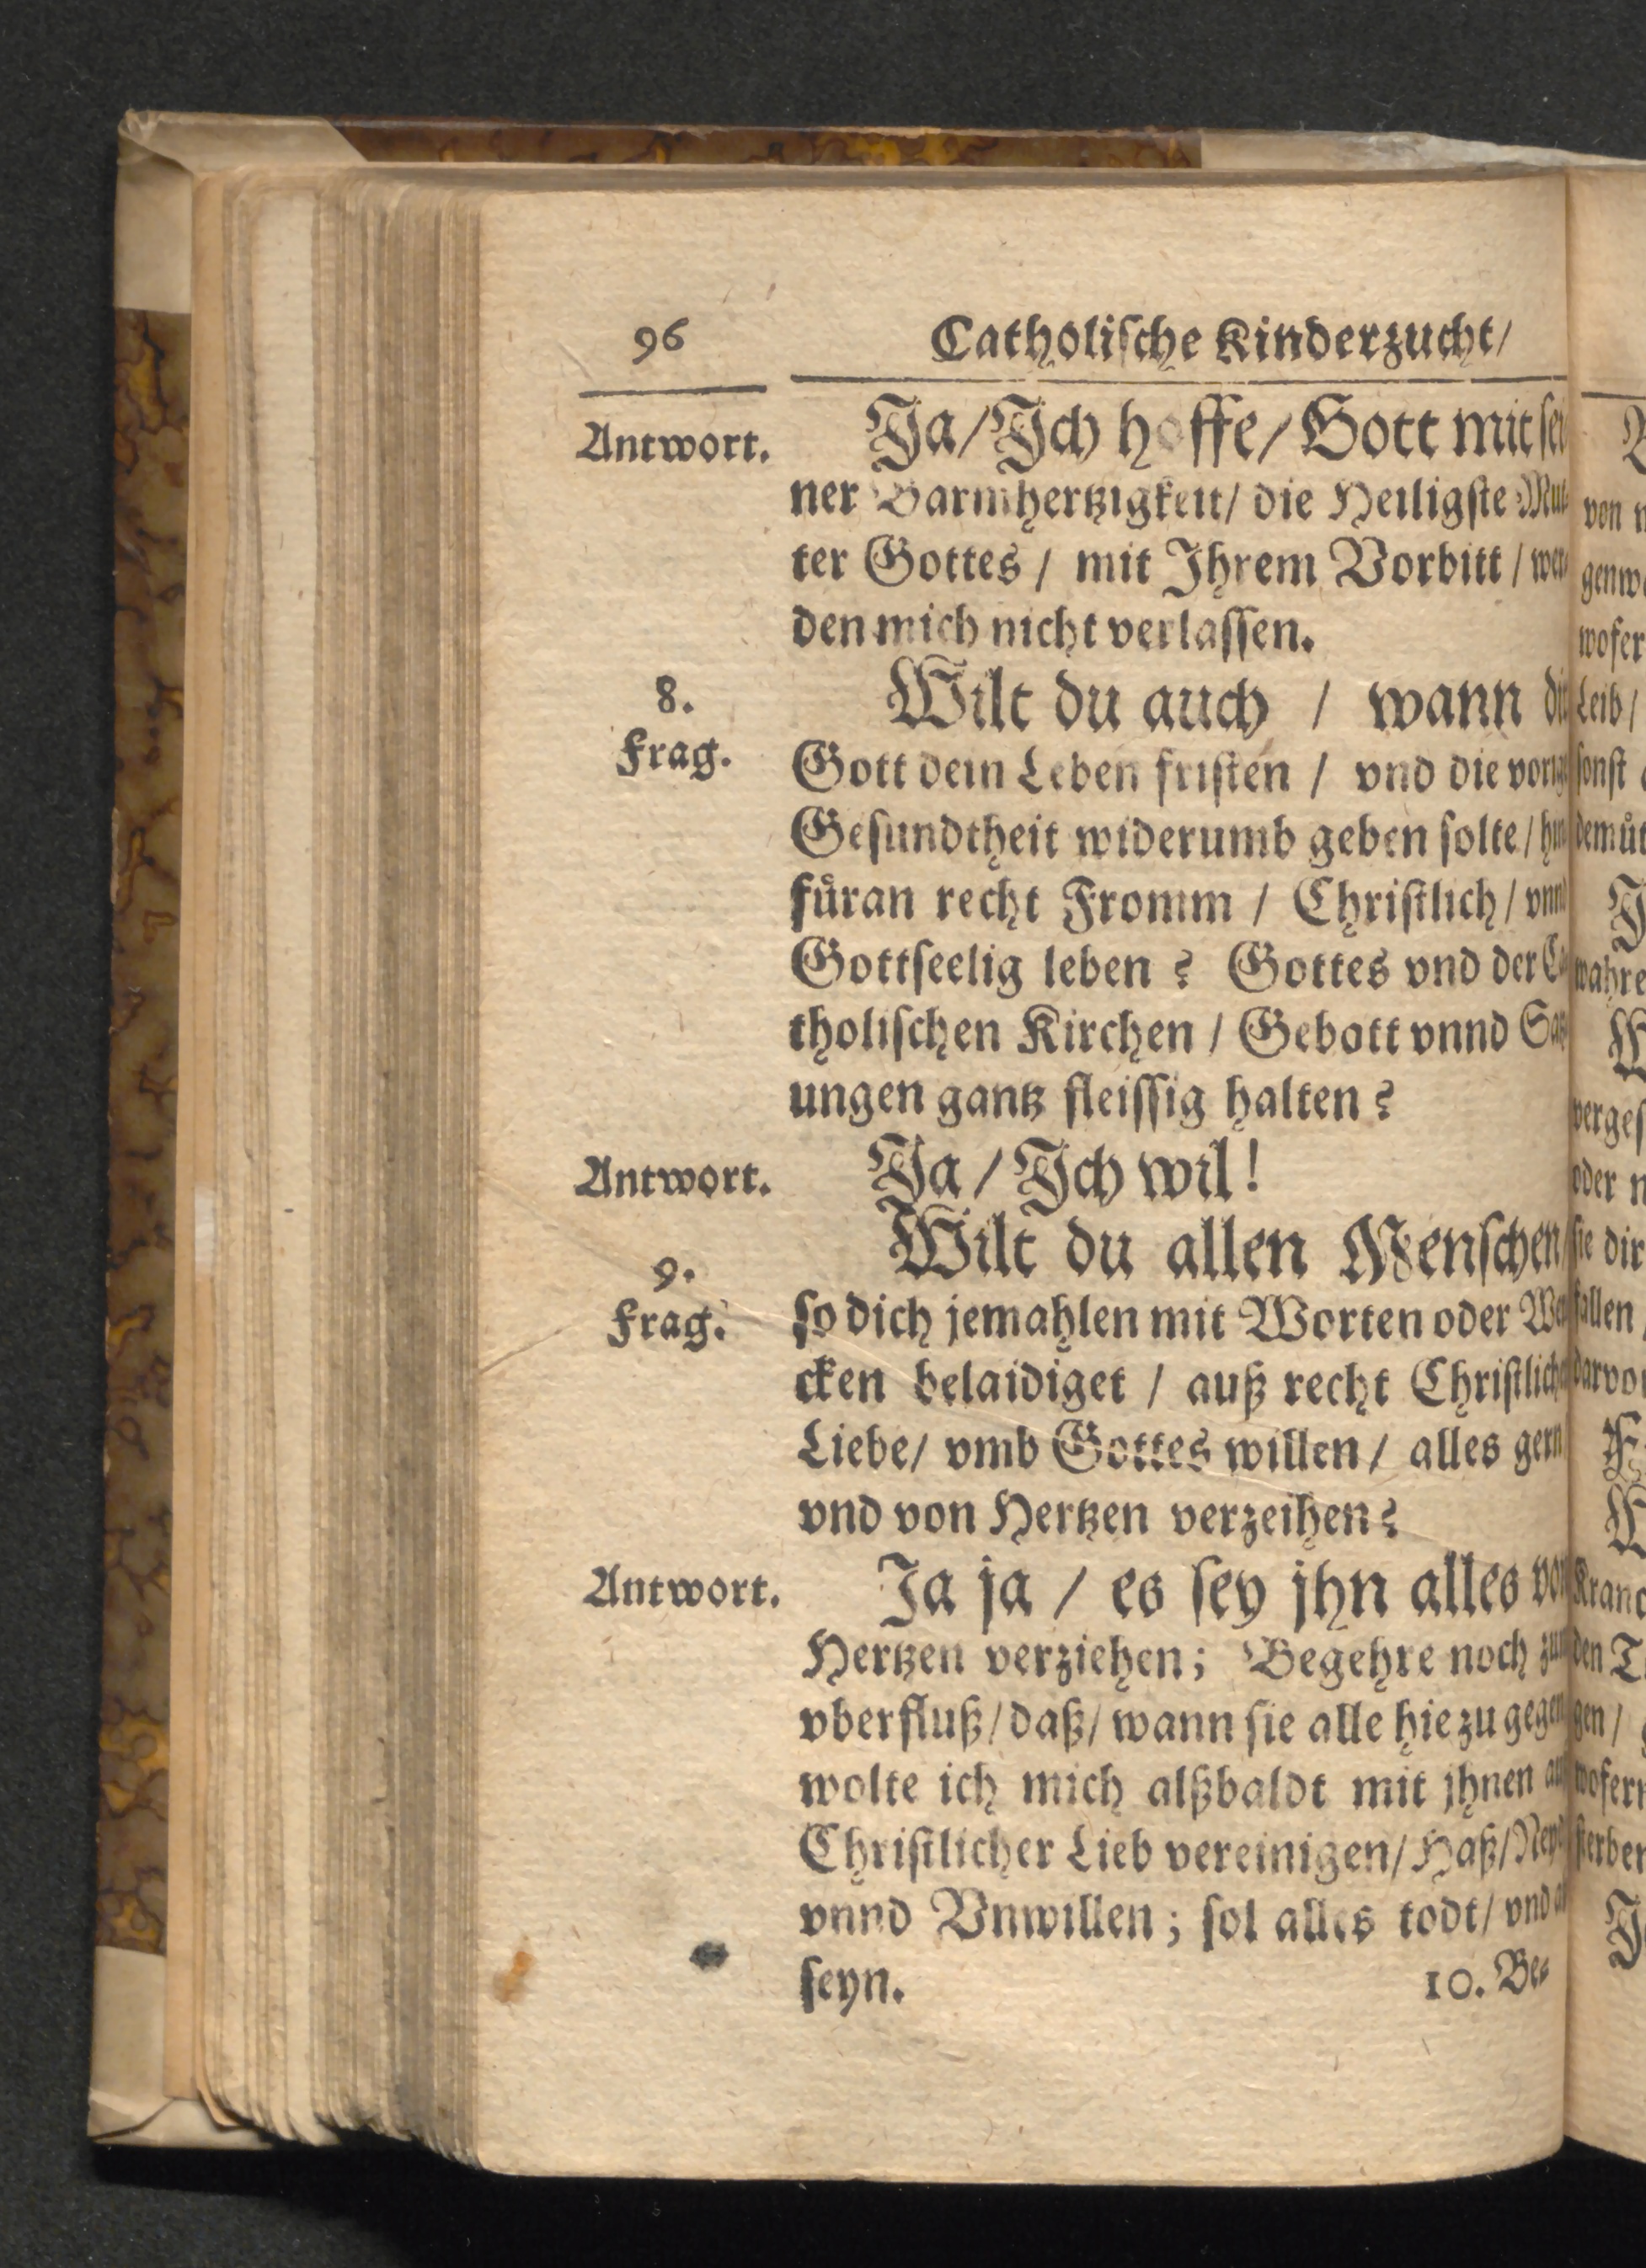 96 Catholische Kinderzucht/
Antwort. Ja/Ich hoffe/Gott mit sei
ner Barmhertzigkeit/ die Heiligste Mut-
ter Gottes / mit Ihrem Vorbitt / wer-
den mich nicht verlassen.
8. Wilt du auch / wann dir
Frag.
Gott dein Leben fristen / vnd die vorige
Gesundtheit widerumb geben solte/ hin
fůran recht Fromm / Christlich / vnnd
Gottseelig leben ? Gottes vnd der Ca
tholischen Kirchen / Gebott vnnd Satz
ungen gantz fleissig halten ?
Antwort. Ja / Ich wil !
Wilt du allen Menschen/
9.
Frag. so dich jemahlen mit Worten oder Wer
cken belaidiget / auß recht Christlicher
Liebe/ vmb Gottes willen / alles gern
vnd von Hertzen verzeihen ?
Antwort. Ja ja / es sey jhn alles von
Hertzen verziehen; Begehre noch zum
vberfluß/ daß/ wann sie alle hie zu gegen
wolte ich mich alßbaldt mit jhnen auß
Christlicher Lieb vereinigen/ Haß/ Neyd
vnnd Vnwillen ; sol alles todt/ vnd
seyn. 10. Be-
von
wofer
Leib /
sonst
demůt
wahre
verges
oder
sie dir
fallen
darvon
den
gen /
wofern
sterben